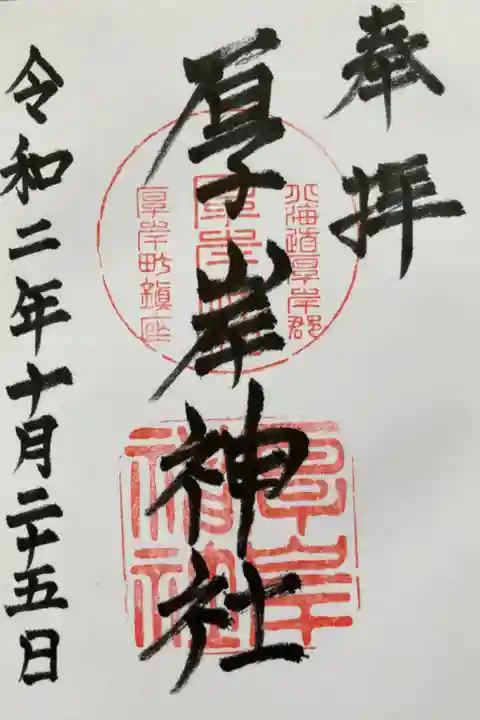 奉拝
厚岸神社
北海道厚岸郡
厚岸町鎮座
厚岸
神社
令和二年十月二十五日